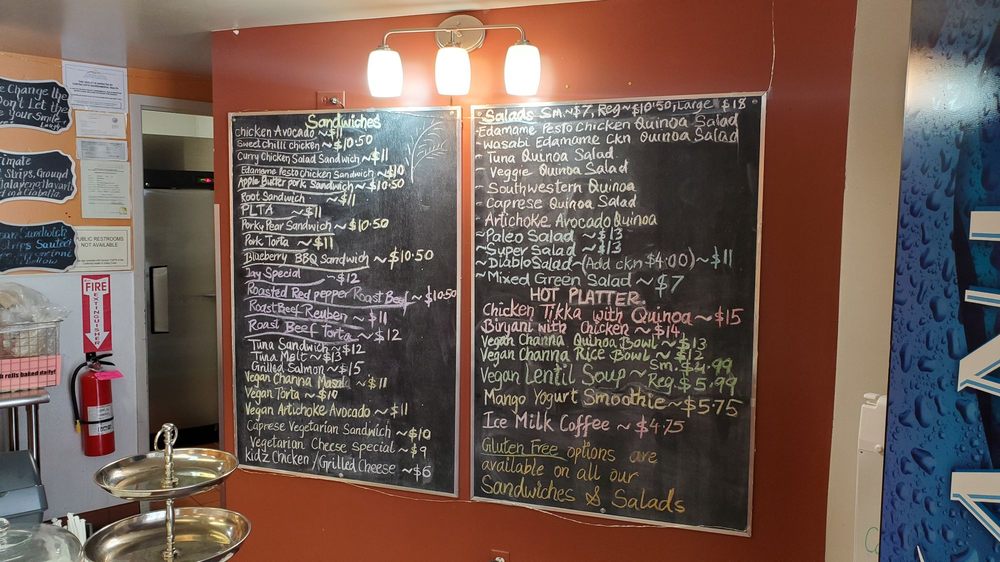 Change the
Don't Let the
your Smile
Strips, Ground
Sandwich
PUBLIC RESTROOMS
NOT AVAILABLE
FIRE
EXTINGUISHER
rolls baked daily!
Sandwiches
Chicken Avocado ~ $11
Sweet Chilli chicken ~ $10.50
Curry Chicken Salad Sandwich ~ $11
Edamame Pesto Chicken Sandwich ~ $10
Apple Butter pork Sandwich ~ $10.50
Root Sandwich ~ $11
PLTA ~ $11
Porky Pear Sandwich ~ $10.50
Pork Torta ~ $11
Blueberry BBQ Sandwich ~ $10.50
Special ~ $12
Roasted Red pepper Roast Beef ~ $10.50
Roast Beef Reuben ~ $11
Roast Beef Torta ~ $12
Tuna Sandwich ~ $12
Tuna Melt ~ $13
Grilled Salmon ~ $15
Vegan Channa Masala ~ $11
Vegan Torta ~ $10
Vegan Artichoke Avocado ~ $11
Caprese Vegetarian Sandwich ~ $10
Vegetarian Cheese Special ~ $9
kidz Chicken / Grilled Cheese ~ $6
Salads Sm ~ $7, Reg ~ $10.50, Large $18
- Edamame Pesto Chicken Quinoa Salad
- Wasabi Edamame Ckn Quinoa Salad
- Tuna Quinoa Salad
- Veggie Quinoa Salad
- Southwestern Quinoa
- Caprese Quinoa Salad
- Artichoke Avocado Quinoa
~ Paleo Salad ~ $13
~ Super Salad ~ $13
~ Diablo Salad ~ (Add ckn $4.00) ~ $11
~ Mixed Green Salad ~ $7
HOT PLATTER.
Chicken Tikka with Quinoa ~ $15
Biryani with Chicken ~ $14
Vegan Channa Quinoa Bowl ~ $13
Vegan Channa Rice Bowl ~ $12
Vegan Lentil Soup ~ Sm. $4.99
Reg. $5.99
Mango Yogurt Smoothie ~ $5.75
Ice Milk Coffee ~ $4.75
Gluten Free options are
available on all our
Sandwiches & Salads